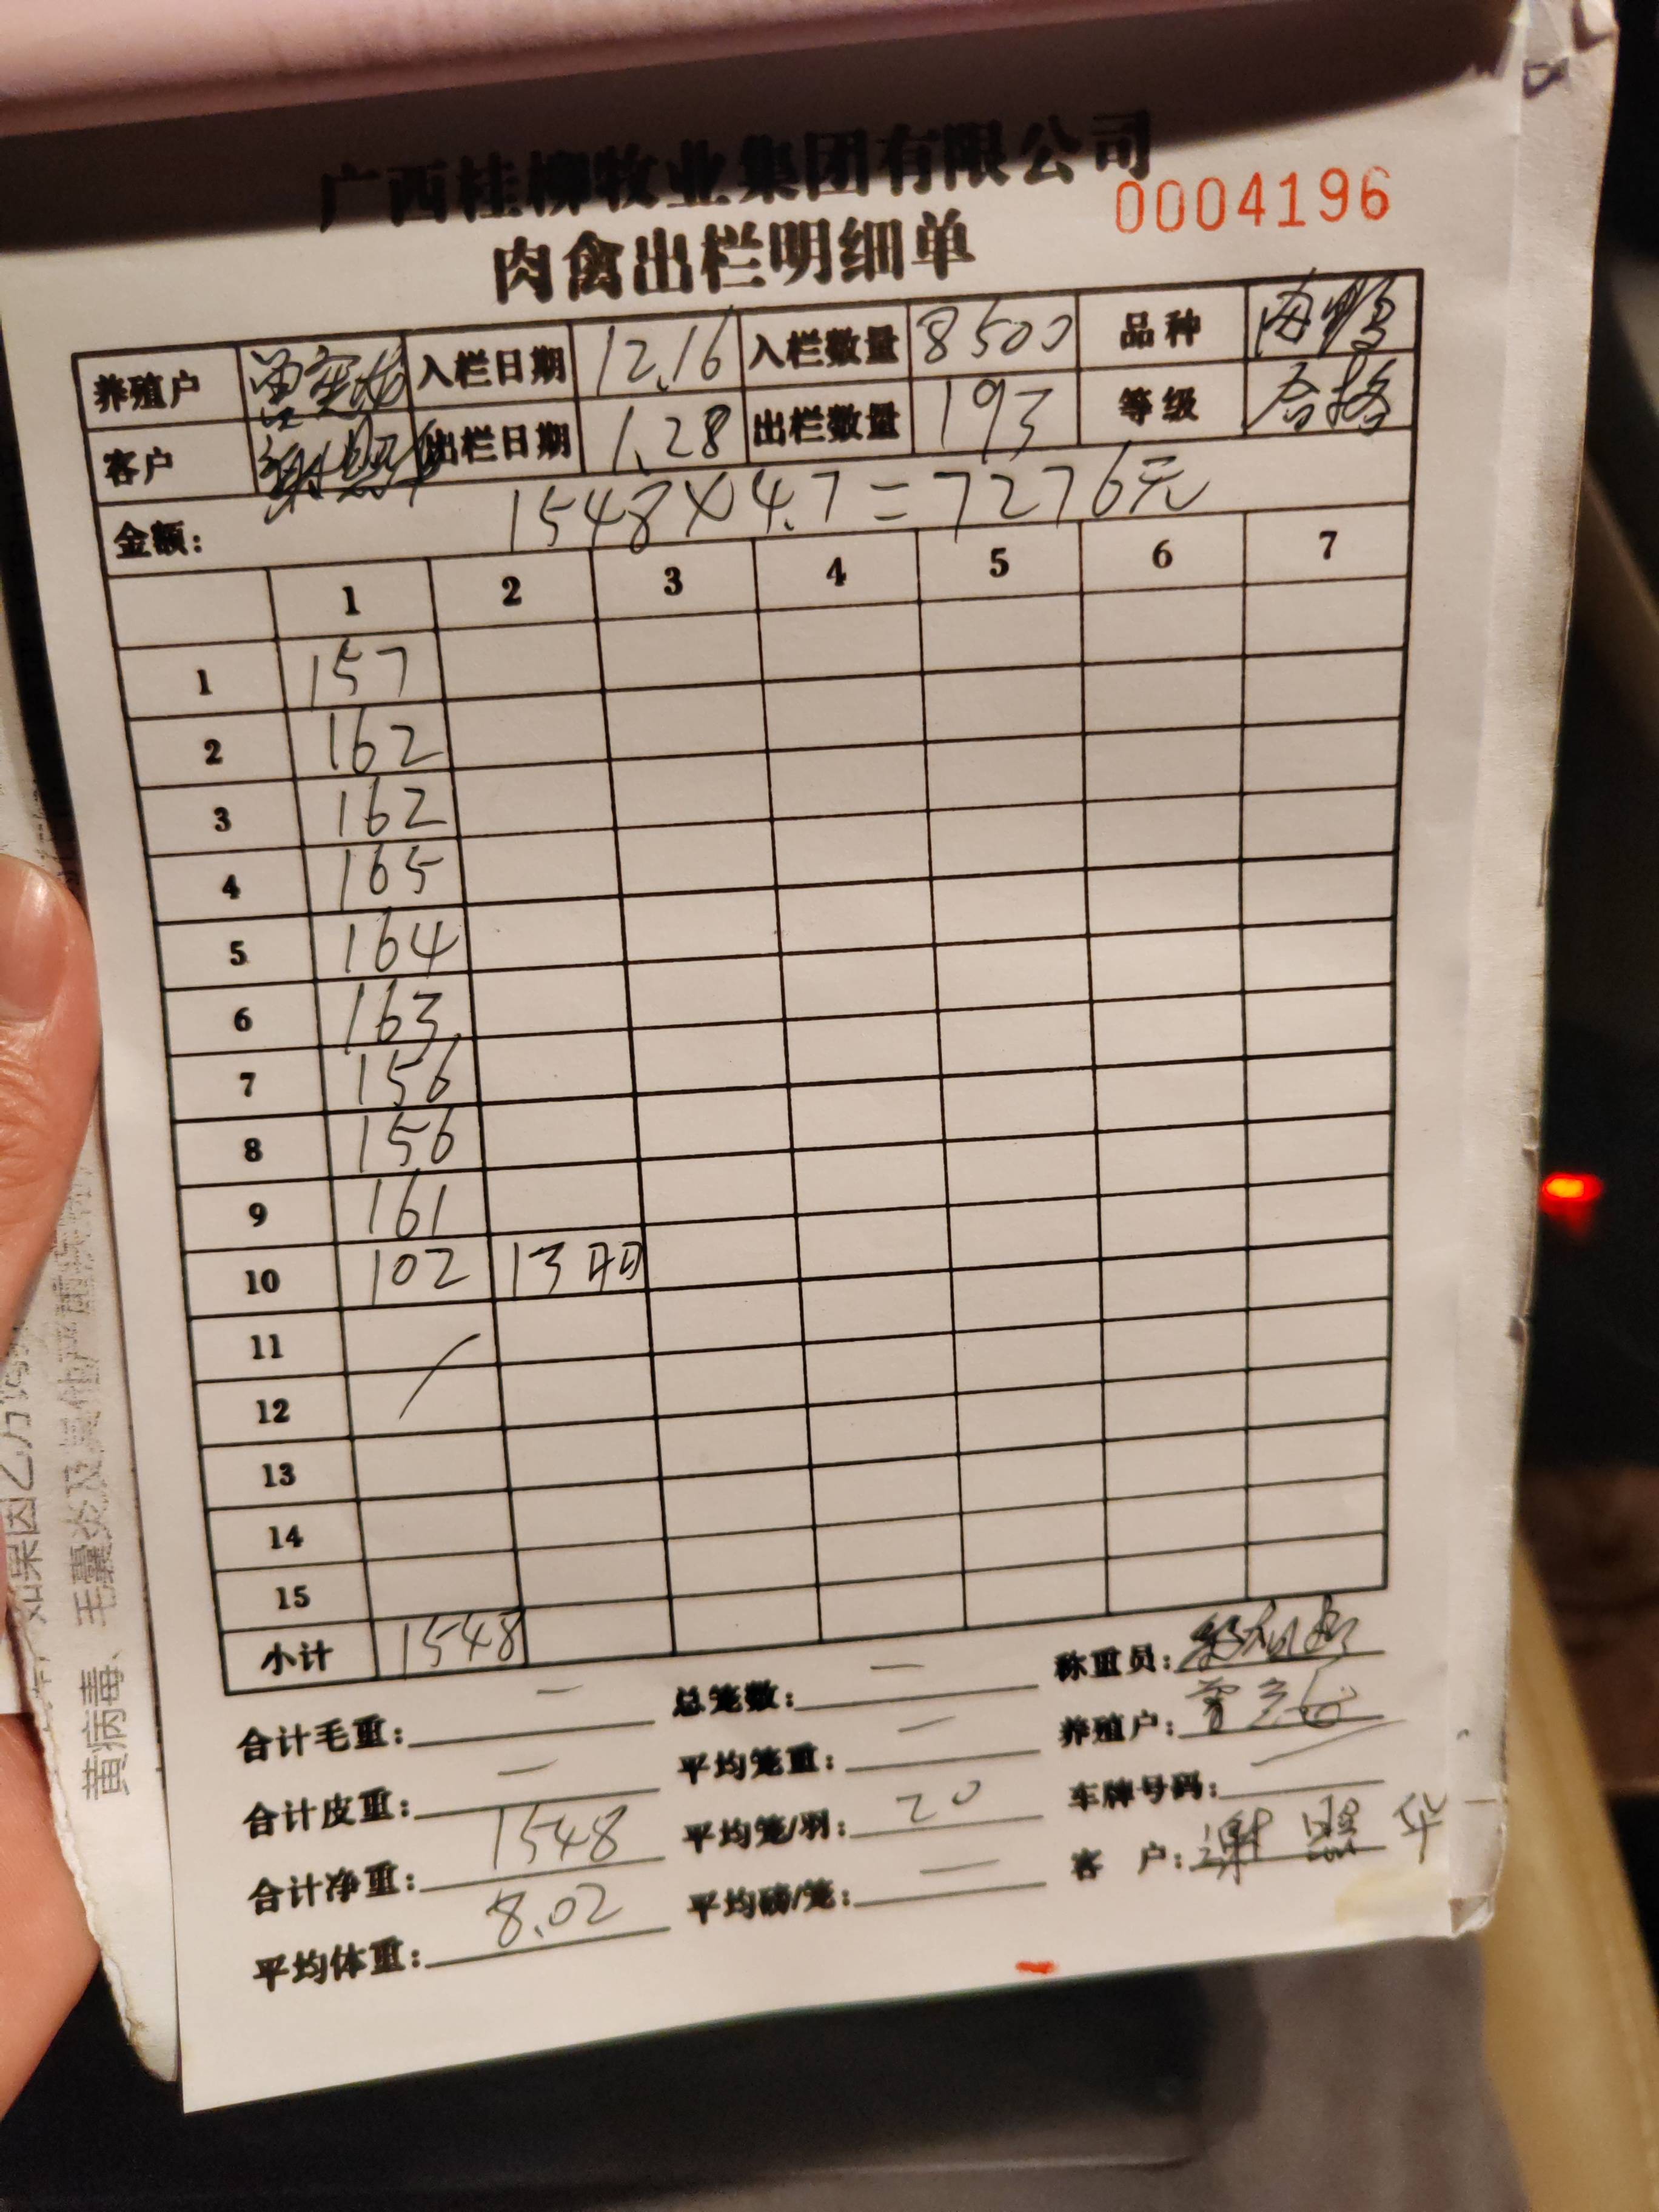 广西桂柳牧业集团有限公司
肉禽出栏明细单 0004196
养殖户 入栏日期 12.16 入栏数量 8500 品种 肉鸭
客户 谢照华 出栏日期 1.28 出栏数量 193 等级 合格
金额: 1548×4.7=7276元
1 2 3 4 5 6 7
1 157
2 162
3 162
4 165
5 164
6 163
7 156
8 156
9 161
10 102 13
11
12
13
14
15
小计 1548
合计毛重: — 总笼数: — 称重员:
合计皮重: — 平均笼重: — 养殖户:
合计净重: 1548 平均笼/羽: 20 车牌号码: —
平均体重: 8.02 平均磅/笼: — 客户: 谢照华
如果因乙方
黄病毒、毛囊炎及其他严重